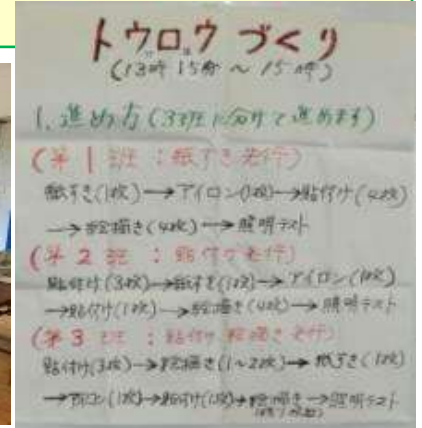 トウロウづくり
(13時15分〜15時)
1. 進め方(3班に分けて進めます)
(第1班:紙すき先行)
紙すき(1枚)→アイロン(1枚)→貼付け(4枚)
→絵描き(4枚)→照明テスト
(第2班:貼付け先行)
貼付け(3枚)→紙すき(1枚)→アイロン(1枚)
→貼付け(1枚)→絵描き(4枚)→照明テスト
(第3班:貼付け絵描き先行)
貼付け(3枚)→絵描き(1〜2枚)→紙すき(1枚)
→アイロン(1枚)→貼付け(1枚)→絵描き→照明テスト